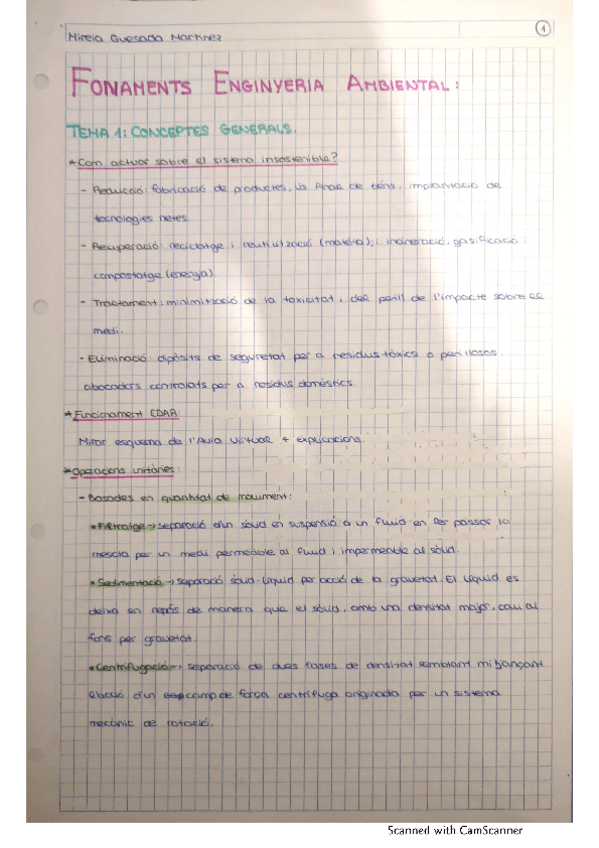 Mireia Quesada Martínez
1
FONAMENTS ENGINYERIA AMBIENTAL:
TEMA 1: CONCEPTES GENERALS.
*Com actuar sobre el sistema insostenible?
- Reducció: fabricació de productes, ús final de béns, implantació de
tecnologies netes.
- Recuperació: reciclatge i reutilització (matèria); i incineració, gasificació i
compostatge (energia)
- Tractament: minimització de la toxicitat i del perill de l'impacte sobre el
medi.
- Eliminació: dipòsits de seguretat per a residus tòxics o perillosos.
abocadors controlats per a residus domèstics.
*Funcionament EDAR
Mirar esquema de l'Aula Virtual + explicacions.
*Operacions unitàries:
- Basades en quantitat de moviment:
•Filtratge → separació d'un sòlid en suspensió a un fluid en fer passar la
mescla per un medi permeable al fluid i impermeable al sòlid.
•Sedimentació → separació sòlid-líquid per acció de la gravetat. El líquid es
deixa en repòs de manera que el sòlid, amb una densitat major, cau al
fons per gravetat.
•Centrifugació → separació de dues fases de densitat semblant mitjançant
l'acció d'un camp de força centrífuga originada per un sistema
mecànic de rotació.
Scanned with CamScanner